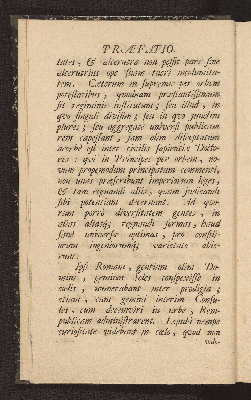 PRÆFATIO.
tates, & alterutra non possit pare sine
alterutrius ope suam tueri incolumita-
tem. Cæterum in supremis per orbem
potestatibus, quodnam præstantissimum
sit regiminis institutum; seu illud, in
quo singuli divisim; seu in quo pauci
plures; seu aggregatè universi publicam
rem capessant, jam olim disputatum
acerbè est inter civilis sapientiæ Docto-
res: qui in Principes per orbem, no-
vum propemodum principatum commenti,
non unas præscribunt imperiorum leges,
& tam regnandi aliis, quam judicandi
sibi potentiam decernunt. Ad quo-
rum porrò diversitatem gentes, in
alias aliasque regnandi formas, haud
secus universæ optimas, pro consili-
orum ingeniorumque varietate abie-
runt.
Ipsi Romani, gentium olim Do-
mini, geminos soles conspexisse in
cœlo, numerabant inter prodigia;
etiam, cum gemini interim Consu-
les, cum decemviri in urbe, Rem-
publicam administrarent. Lepidi nempe
curiositate videbant in cœlo, quod non
vide-